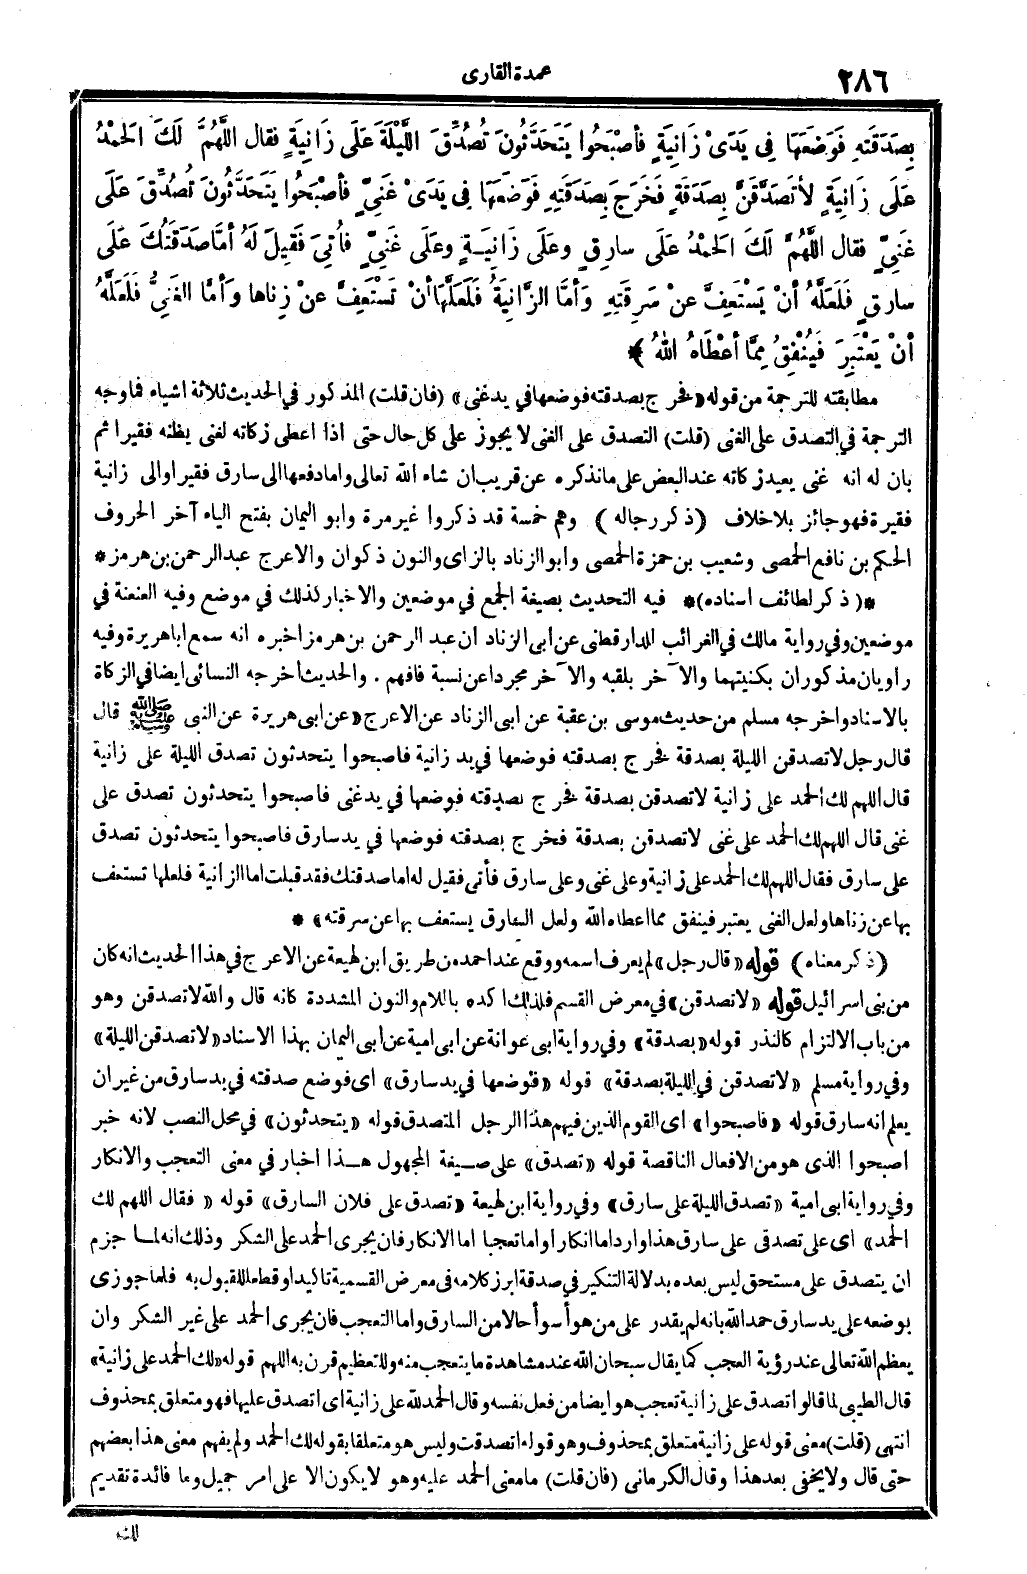 ٢٨٦
عمدة القارى
بِصَدَقَتِهِ فَوَضَعَهَا فِي يَدَىْ زَانِيَةٍ فأصْبَحُوا يَتَحَدَّثُونَ تُصُدِّقَ اللَّيْلَةَ عَلَى زَانِيَةٍ فقال اللَّهُمَّ لَكَ الحَمْدُ
عَلَى زَانِيَةٍ لأتَصَدَّقَنَّ بِصَدَقَةٍ فَخَرَجَ بِصَدَقَتِهِ فَوَضَعَهَا فِي يَدَىْ غَنِيٍّ فأصْبَحُوا يَتَحَدَّثُونَ تُصُدِّقَ عَلَى
غَنِيٍّ فقال اللَّهُمَّ لَكَ الحَمْدُ عَلَى سارِقٍ وعَلَى زَانِيَةٍ وعَلَى غَنِيٍّ فأُتِيَ فَقِيلَ لَهُ أمَّا صَدَقَتُكَ عَلَى
سارِقٍ فَلَعَلَّهُ أنْ يَسْتَعِفَّ عنْ سَرِقَتِهِ وأمَّا الزَّانِيَةُ فَلَعَلَّهَا أنْ تَسْتَعِفَّ عنْ زِناها وأمَّا الغَنِيُّ فَلَعَلَّهُ
أنْ يَعْتَبِرَ فَيُنْفِقُ مِمَّا أعْطَاهُ اللهُ ﴾ *
مطابقته للترجمة من قوله «فخرج بصدقته فوضعها في يد غنى» (فان قلت) المذكور في الحديث ثلاثة اشياء فما وجه
الترجمة في التصدق على الغنى (قلت) التصدق على الغنى لا يجوز على كل حال حتى اذا اعطى زكاته لغنى يظنه فقيرا ثم
بان له انه غنى يعيد زكاته عند البعض على ما نذكره عن قريب ان شاء الله تعالى واما دفعها الى سارق فقير او الى زانية
فقيرة فهو جائز بلا خلاف (ذكر رجاله) وهم خمسة قد ذكروا غير مرة وابو اليمان بفتح الياء آخر الحروف
الحكم بن نافع الحمصى وشعيب بن حمزة الحمصى وابو الزناد بالزاى والنون ذكوان والاعرج عبد الرحمن بن هرمز *
*(ذكر لطائف اسناده)* فيه التحديث بصيغة الجمع في موضعين والاخبار لذلك في موضع وفيه العنعنة في
موضعين وفي رواية مالك في الغرائب للدارقطنى عن ابى الزناد ان عبد الرحمن بن هرمز اخبره انه سمع ابا هريرة وفيه
راويان مذكوران بكنيتهما والآخر بلقبه والآخر مجردا عن نسبة فافهم . والحديث اخرجه النسائى ايضا في الزكاة
بالاسناد واخرجه مسلم من حديث موسى بن عقبة عن ابى الزناد عن الاعرج «عن ابى هريرة عن النبى ﷺ قال
قال رجل لاتصدقن الليلة بصدقة فخرج بصدقته فوضعها في يد زانية فاصبحوا يتحدثون تصدق الليلة على زانية
قال اللهم لك الحمد على زانية لاتصدقن بصدقة فخرج بصدقته فوضعها في يد غنى فاصبحوا يتحدثون تصدق على
غنى قال اللهم لك الحمد على غنى لاتصدقن بصدقة فخرج بصدقته فوضعها في يد سارق فاصبحوا يتحدثون تصدق
على سارق فقال اللهم لك الحمد على زانية وعلى غنى وعلى سارق فأتى فقيل له اما صدقتك فقد قبلت اما الزانية فلعلها تستعف
بها عن زناها ولعل الغنى يعتبر فينفق مما اعطاه الله ولعل السارق يستعف بها عن سرقته» *
(ذكر معناه) قوله «قال رجل» لم يعرف اسمه ووقع عند احمد من طريق ابن لهيعة عن الاعرج في هذا الحديث انه كان
من بنى اسرائيل قوله «لاتصدقن» في معرض القسم فلذلك اكده باللام والنون المشددة كانه قال والله لاتصدقن وهو
من باب الالتزام كالنذر قوله «بصدقة» وفي رواية ابى عوانة عن ابى امية عن ابى اليمان بهذا الاسناد «لاتصدقن الليلة»
وفي رواية مسلم «لاتصدقن في الليلة بصدقة» قوله «فوضعها في يد سارق» اى فوضع صدقته في يد سارق من غير ان
يعلم انه سارق قوله «فاصبحوا» اى القوم الذين فيهم هذا الرجل المتصدق قوله «يتحدثون» في محل النصب لانه خبر
اصبحوا الذى هو من الافعال الناقصة قوله «تصدق» على صيغة المجهول هذا اخبار في معنى التعجب والانكار
وفي رواية ابى امية «تصدق الليلة على سارق» وفي رواية ابن لهيعة «تصدق على فلان السارق» قوله «فقال اللهم لك
الحمد» اى على تصدقى على سارق هذا وارد اما انكارا واما تعجبا اما الانكار فان يجرى الحمد على الشكر وذلك انه لما جزم
ان يتصدق على مستحق ليس بعده بدلالة التنكير في صدقة ابرز كلامه في معرض القسمية تاكيدا وقطعا للقبول به فلما جوزى
بوضعه على يد سارق حمد الله بانه لم يقدر على من هو أسوأ حالا من السارق واما التعجب فان يجرى الحمد على غير الشكر وان
يعظم الله تعالى عند رؤية العجب كما يقال سبحان الله عند مشاهدة ما يتعجب منه وللتعظيم قرن به اللهم قوله «لك الحمد على زانية»
قال الطيبى لما قالوا تصدق على زانية تعجب هو ايضا من فعل نفسه وقال الحمد لله على زانية اى اتصدق عليها فهو متعلق بمحذوف
انتهى (قلت) معنى قوله على زانية متعلق بمحذوف وهو قوله اتصدقت وليس هو متعلقا بقوله لك الحمد ولم يفهم معنى هذا بعضهم
حتى قال ولا يخفى بعد هذا وقال الكرمانى (فان قلت) ما معنى الحمد عليه وهو لا يكون الا على امر جميل وما فائدة تقديم
لك